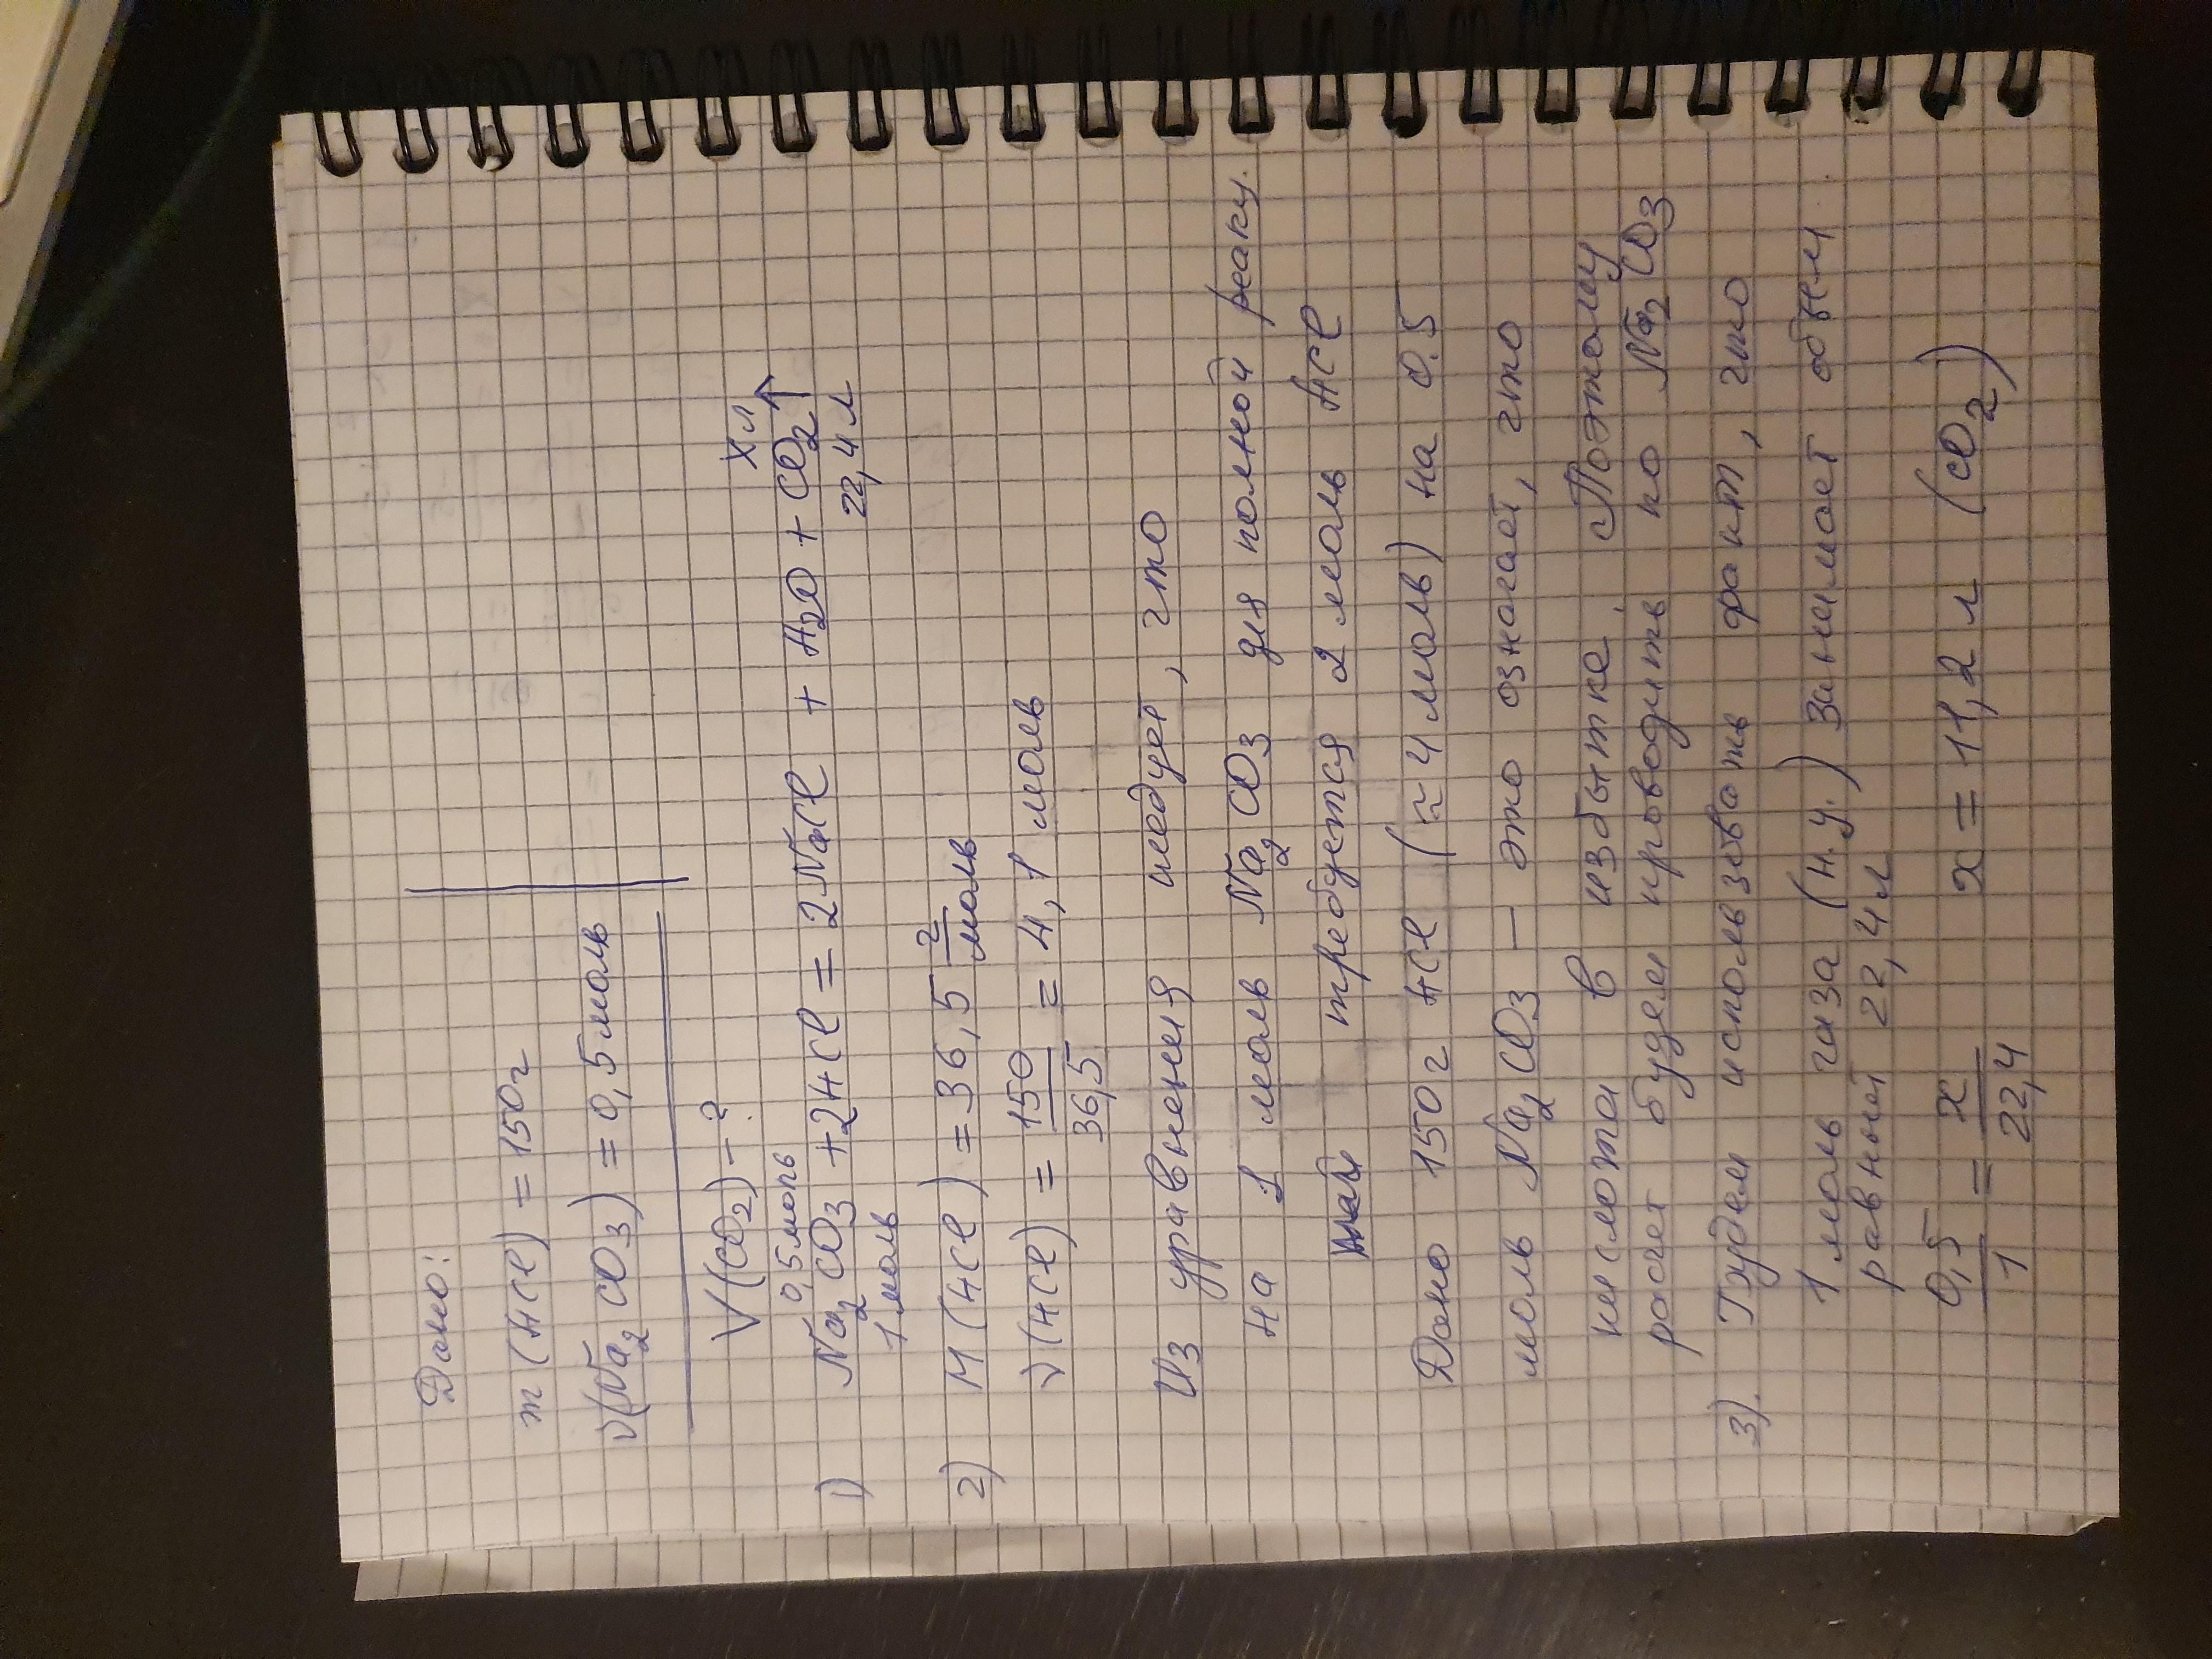 Дано:
m (HCl) = 150г
ν(Na2CO3) = 0,5 моль
V(CO2) - ?
0,5моль x л
1) Na2CO3 + 2HCl = 2NaCl + H2O + CO2↑
1 моль 22,4 л
2) M (HCl) = 36,5 г/моль
ν(HCl) = 150/36,5 = 4,1 моль
Из уравнения следует, что
на 1 моль Na2CO3 для полной реакц.
требуется 2 моль HCl
Дано 150 г HCl (≈ 4 моль) на 0.5
моль Na2CO3 — это означает, что
кислота в избытке. Поэтому
расчет будем проводить по Na2CO3
3). Будем использовать факт, что
1 моль газа (н.у.) занимает объем
равный 22,4л
0,5/1 = x/22,4 x = 11,2 л (CO2)